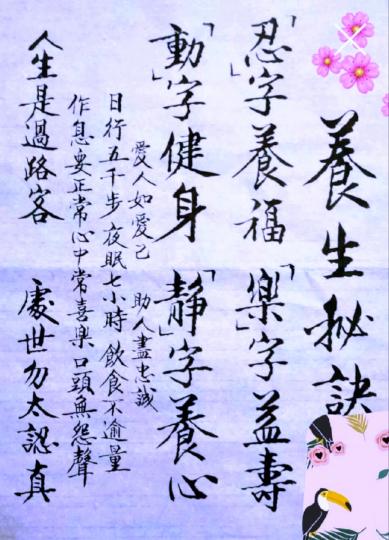 養生秘訣
「忍」字養福 「樂」字益壽
「動」字健身 「靜」字養心
愛人如愛己 助人盡忠誠
日行五千步夜眠七小時 飲食不逾量
作息要正常心中常喜樂口頭無怨聲
人生是過路客 處世勿太認真